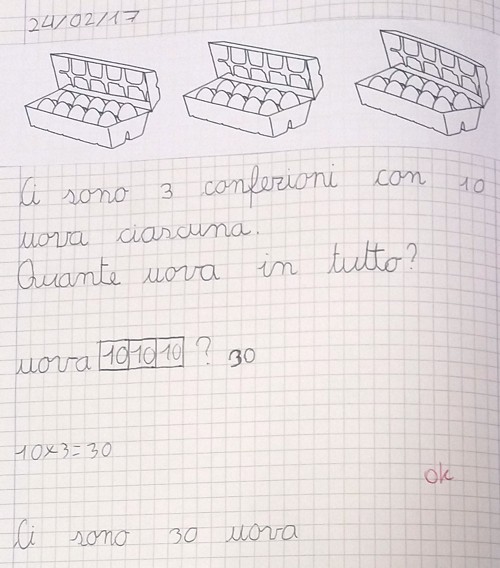 24/02/17
Ci sono 3 confezioni con 10
uova ciascuna.
Quante uova in tutto?
uova 10 10 10 ? 30
10x3=30
ok
Ci sono 30 uova